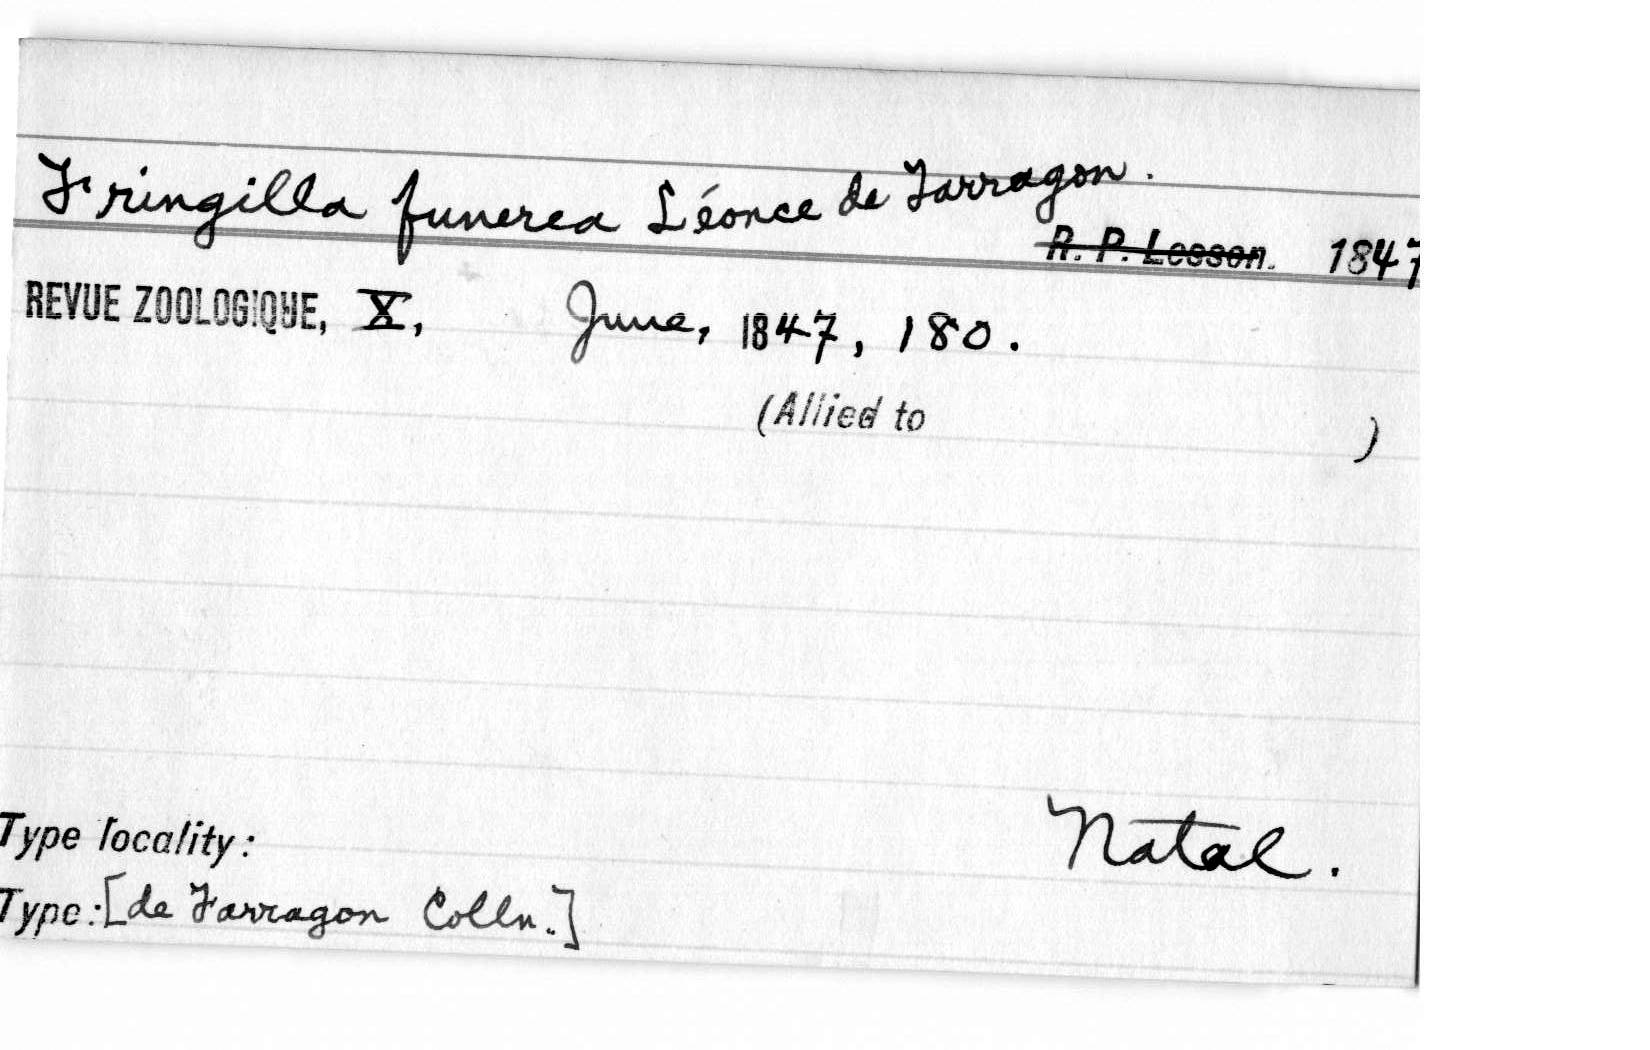 Fringilla funerea Léonce de Tarragon.
R. P. Lesson. 1847
REVUE ZOOLOGIQUE, X, June, 1847, 180.
(Allied to )
Type locality: Natal.
Type: [de Tarragon Colln.]